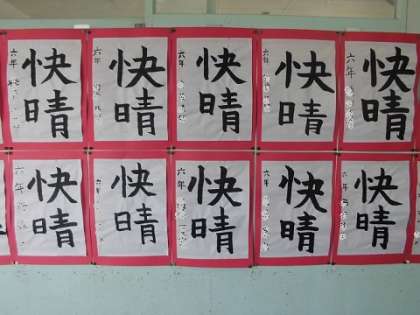 快晴
六年
快晴
六年
快晴
六年
快晴
六年
快晴
六年
快晴
六年
快晴
六年
快晴
六年
快晴
六年
快晴
六年